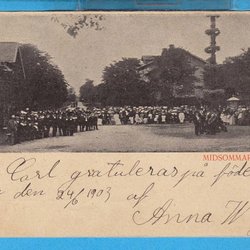 MIDSOMMAR
Carl gratuleras på föde
den 24/6 1903 af
Anna W